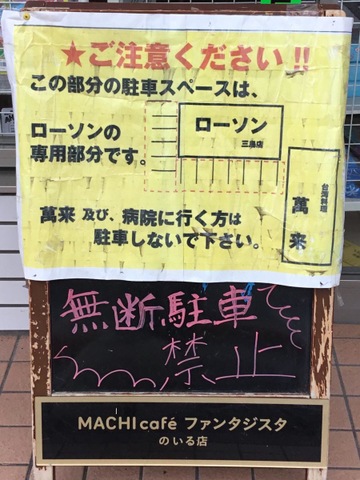 ★ご注意ください!!
この部分の駐車スペースは、
ローソンの
専用部分です。
ローソン
三島店
台湾料理
萬来
萬来 及び、病院に行く方は
駐車しないで下さい。
無断駐車
禁止
MACHI café ファンタジスタ
のいる店